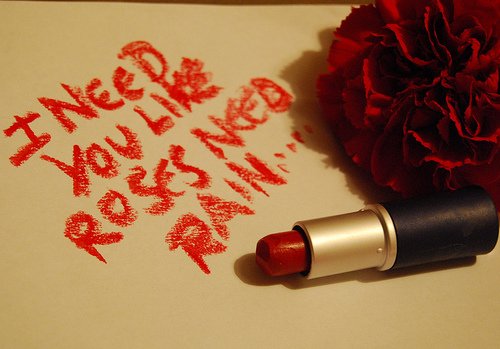 I NEED
YOU LIKE
ROSES NEED
RAIN...